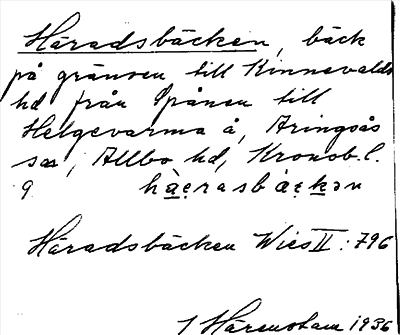 Häradsbäcken, bäck
på gränsen till Kinnevalds
hd från Spånen till
Helgevarma å, Aringsås
sn, Allbo hd, Kronob. l.
9 hàrasbäkən
Häradsbäcken Wies II: 796
1 Härenstam 1936